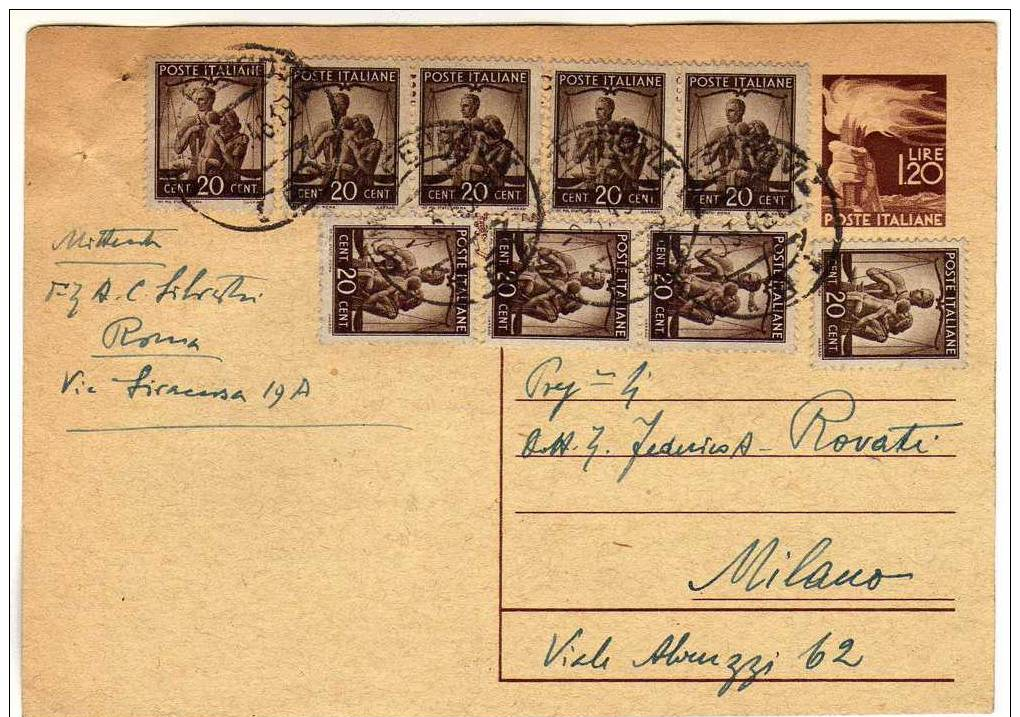 POSTE ITALIANE
CENT 20 CENT
POSTE ITALIANE
CENT 20 CENT
POSTE ITALIANE
CENT 20 CENT
POSTE ITALIANE
CENT 20 CENT
POSTE ITALIANE
CENT 20 CENT
LIRE
1.20
POSTE ITALIANE
POSTE ITALIANE
20 CENT
POSTE ITALIANE
20 CENT
POSTE ITALIANE
20 CENT
POSTE ITALIANE
20 CENT
Mittente
A. C. Silvestri
Roma
Via Siracusa 19 A
Federico A. Rovati
Milano
Viale Abruzzi 62